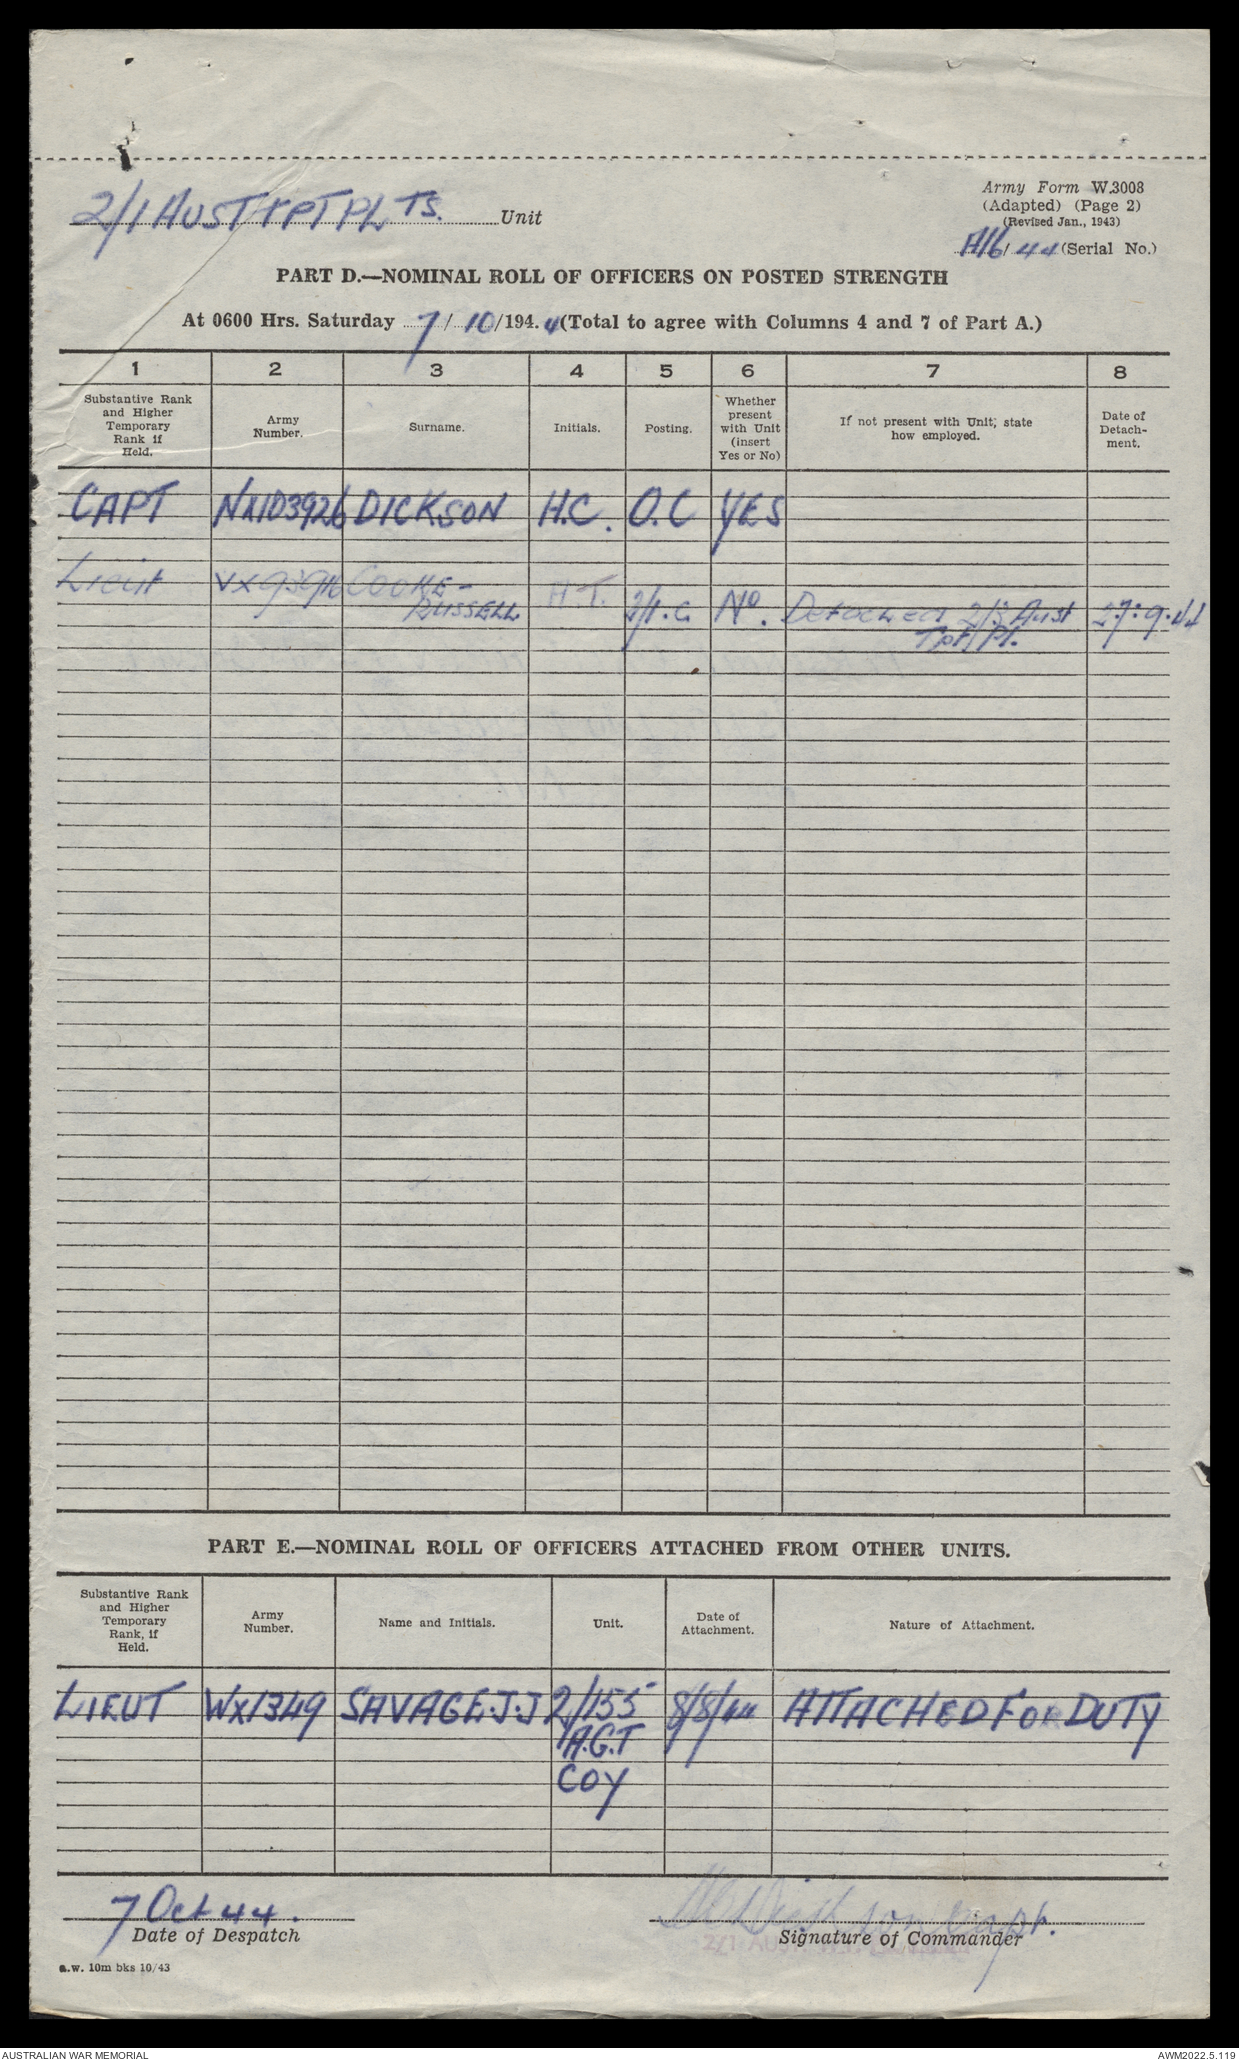 2/1 AUST TPT PLTS. Unit
Army Form W.3008
(Adapted) (Page 2)
(Revised Jan., 1943)
A16/44 (Serial No.)
PART D.—NOMINAL ROLL OF OFFICERS ON POSTED STRENGTH
At 0600 Hrs. Saturday 7/10/1944 (Total to agree with Columns 4 and 7 of Part A.)
1 2 3 4 5 6 7 8
Substantive Rank and Higher Temporary Rank if Held.
Army Number.
Surname.
Initials.
Posting.
Whether present with Unit (insert Yes or No)
If not present with Unit, state how employed.
Date of Detach-ment.
CAPT NX103926 DICKSON H.C. O.C YES
Lieut COOKE- H.T.
RUSSELL 2/I.C No. Detached 2/3 Aust 27.9.44
Tpt Pl.
PART E.—NOMINAL ROLL OF OFFICERS ATTACHED FROM OTHER UNITS.
Substantive Rank and Higher Temporary Rank, if Held.
Army Number.
Name and Initials.
Unit.
Date of Attachment.
Nature of Attachment.
LIEUT WX1349 SAVAGE.J.J 2/155 8/8/44 ATTACHED FOR DUTY
A.G.T
COY
7 Oct 44.
Date of Despatch
Capt.
Signature of Commander
2/1 AUST.
a.w. 10m bks 10/43
AUSTRALIAN WAR MEMORIAL
AWM2022.5.119